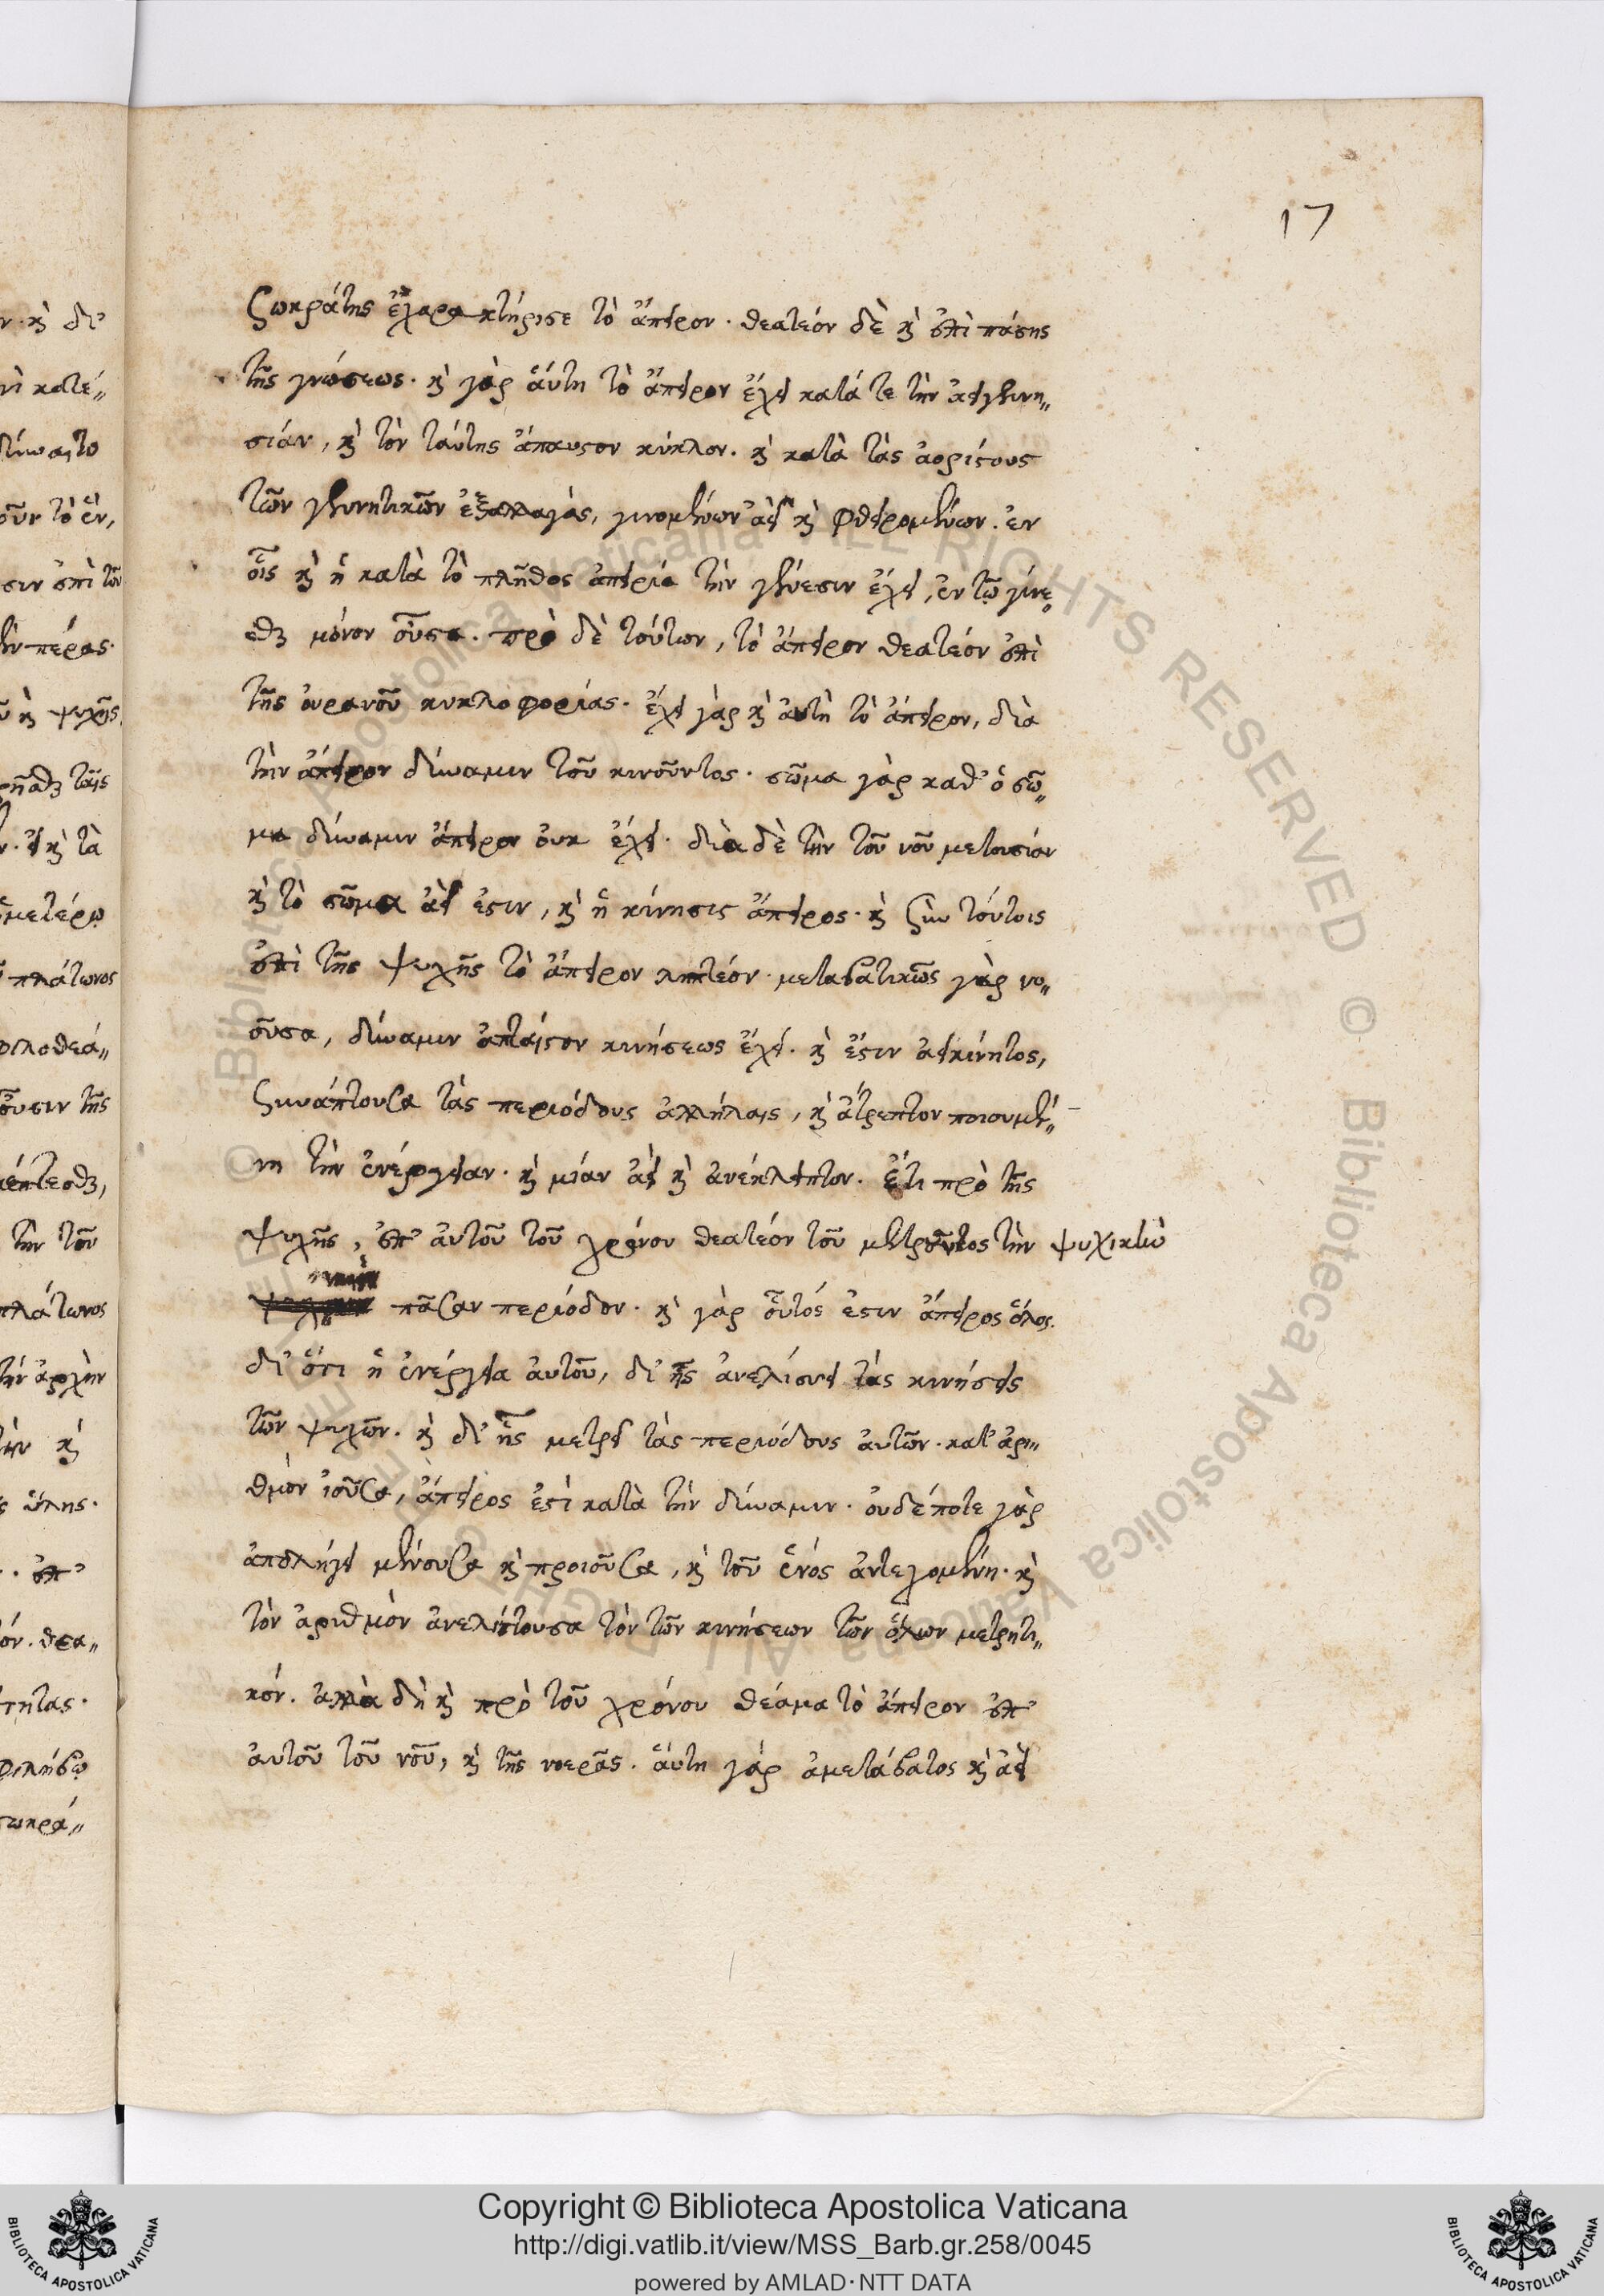 17
Σωκράτης ἐχαρακτήρισε τὸ ἄπειρον. θεατέον δὲ καὶ ἐπὶ πάσης
τῆς γνώσεως. καὶ γὰρ αὕτη τὸ ἄπειρον ἔχει κατά τε τὴν ἀειγεννη„
σίαν, καὶ τὸν ταύτης ἄπαυστον κύκλον. καὶ κατὰ τὰς ἀορίστους
τῶν γεννητικῶν ἐξαλλαγάς, γινομένων ἀεὶ καὶ φθειρομένων. ἐν
οἷς καὶ ἡ κατὰ τὸ πλῆθος ἀπειρία τὴν γένεσιν ἔχει, ἐν τῷ γίνε
σθαι μόνον οὖσα. πρὸ δὲ τούτων, τὸ ἄπειρον θεατέον ἐπὶ
τῆς οὐρανοῦ κυκλοφορίας. ἔχει γὰρ καὶ αὐτὴ τὸ ἄπειρον, διὰ
τὴν ἄπειρον δύναμιν τοῦ κινοῦντος. σῶμα γὰρ καθ' ὁ σῶ„
μα δύναμιν ἄπειρον οὐκ ἔχει. διὰ δὲ τὴν τοῦ νοῦ μετουσίαν
καὶ τὸ σῶμα ἀεί ἐστιν, καὶ ἡ κίνησις ἄπειρος. καὶ σὺν τούτοις
ἐπὶ τῆς ψυχῆς τὸ ἄπειρον ληπτέον. μεταβατικῶς γὰρ νο„
οῦσα, δύναμιν ἄπταιστον κινήσεως ἔχει. καὶ ἔστιν ἀεικίνητος,
συνάπτουσα τὰς περιόδους ἀλλήλαις, καὶ ἄτρεπτον ποιουμέ„
νη τὴν ἐνέργειαν. καὶ μίαν ἀεὶ καὶ ἀνέκλειπτον. ἔτι πρὸ τῆς
ψυχῆς, ἐπ' αὐτοῦ τοῦ χρόνου θεατέον τοῦ μετροῦντος τὴν ψυχικὴν
πᾶσαν περίοδον. καὶ γὰρ οὗτός ἐστιν ἄπειρος ὅλος.
δι' ὅτι ἡ ἐνέργεια αὐτοῦ, δι' ἧς ἀνελίσσει τὰς κινήσεις
τῶν ψυχῶν. καὶ δι' ἧς μετρεῖ τὰς περιόδους αὐτῶν. κατ' ἀρι„
θμὸν ἰοῦσα, ἄπειρός ἐστι κατὰ τὴν δύναμιν. οὐδέποτε γὰρ
ἀπολήγει μένουσα καὶ προιοῦσα, καὶ τοῦ ἑνός ἀντεχομένη. καὶ
τὸν ἀριθμὸν ἀνελίττουσα τὸν τῶν κινήσεων τῶν ὅλων μετρητι„
κόν. ἀλλὰ δὴ καὶ πρὸ τοῦ χρόνου θέαμα τὸ ἄπειρον ἐπ'
αὐτοῦ τοῦ νοῦ, καὶ τῆς νοερᾶς. αὕτη γάρ ἀμετάβατος καὶ ἀεὶ
Copyright © Biblioteca Apostolica Vaticana
http://digi.vatlib.it/view/MSS_Barb.gr.258/0045
powered by AMLAD·NTT DATA